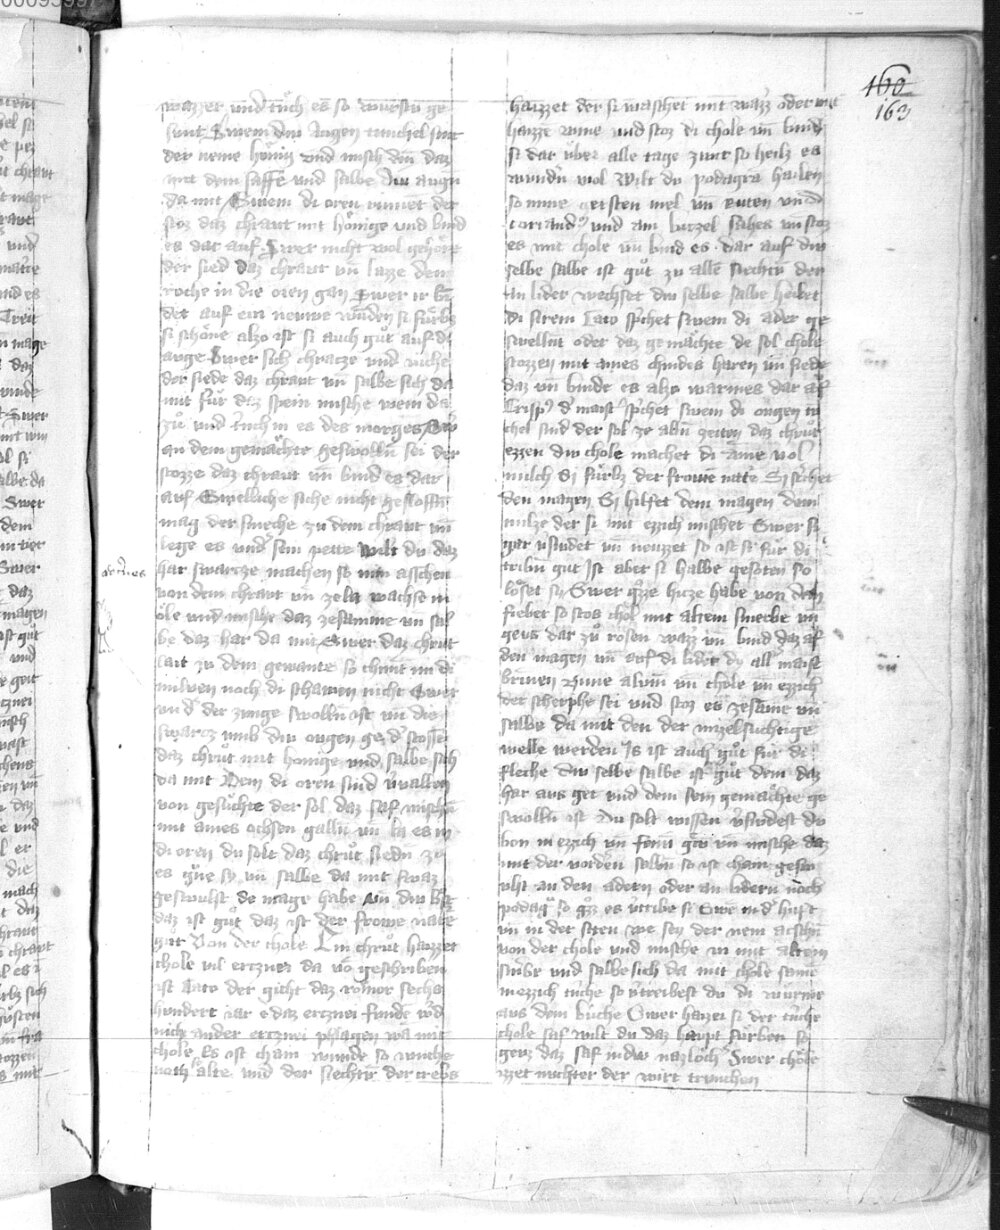 160
163
wazzer vnd tuͤch es so wuͤrstu ge
sunt Swem dew augen tunchel sint
der neme hoͤnig vnd misch den daz
mit dem saffe vnd salbe die augen
da mit Swem di oren rinnent der
stoz daz chraut mit hoͤnige vnd bind
es dar auf Swer nicht wol gehoͤre
der sied daz chraut vñ lazze den
roche in die oren gan Swer ir bin
det auf ein neuwe wunden si fuͤrbt
si schoͤne also ist si auch guͤt auf di
auge Swer sich chracze vnd iuche
der siede daz chraut vñ salbe sich da
mit fuͤr daz spein mische wein da
zuͦ vnd trinch es des morgens Swe
an dem gemaͤchte geswollen sei der
stozze daz chraut vñ bind es dar
auf Swelliche siche nicht geslaffen
mag der smeche zu dem chraut vñ
lege es vnder sein pette wilt du daz
har swartze machen so nim asschen
von dem chraut vñ zelaz wachse in
oͤle vnd mische daz zesamme vn sal
be daz har da mit Swer daz chrut
lait zu dem gewante so chumt im di
milwen noch di schaben nicht Swer
vnd der zunge swollen ist vñ die
swarcz vmb dew ougen gee der stosse
daz chruͤt mit honige vnd salbe sich
da mit Dem di oren sind vervallen
von gesuͤchte der sol daz saf mischen
mit aines ochsen gallen vñ la es in
di oren du solt daz chruͤt sieden ze
es guͤe sy vñ salbe da mit swaz
geswulst de mage habe vñ dew brust
daz ist guͤt daz ist der frowe nate
guͤt Von der chole Ein chruͤt haizzet
chole vil ertzney da von geschriben
ist Cato der gicht daz romor sechs
hundert iar e daz ertznei funde wrd
nicht ander ertznei pflagen wan mit
chole Es ist cham wunde so wuͤche
noch alte vnd der siechtum der crebs
haizzet der si waschet mit wazz oder mit
haizze wine vnd stoz di chole vñ bind
si dar uͤber alle tage zwir so heilt es
wunden wol Wilt du podagra hailen
so nime gersten mel vñ ruten vnd
coriandrum vnd ain luͤtzel saltzes vñ stoz
es mit chole vñ bind es dar auf dew
selbe salbe ist guͤt zu allen siechtum der
in lider wechset dew selbe salbe hailet
di sirem Cato spricht swem di ader ge
swellent oder daz gemaͤchte de sol chole
stozzen mit aines chindes haren vñ siede
daz vñ binde es also warmes dar auf
Crispus der maister sprichet swem di ougen tu
chel sind der sol ze allen zeiten daz chrut
ezzen dew chole machet di ame vol
milch Si fuͤrbt der frowen nate Si sterchet
den magen Si hilfet dem magen dem
milze der si mit ezzich mischet Swer si
gar versiudet vñ neuzzet so ist si fuͤr di
triben gut Ist aber si halbe gesoten so
loͤset si Swer grozze hicze habe von dem
fieber so stos chol mit altem smerbe vñ
geus dar zuͦ rosen wazz vñ bind daz auf
den magen vñ auf di lider dy aller maist
brinnen Nime alvm vñ chole vñ ezzich
der scherphe sei vnd stoz es zesame vñ
salbe da mit den der mizelsuchtige
welle werden Is ist auch guͤt fuͤr di
flecke dew selbe salbe ist guͤt dem daz
har aus get vnd dem sein gemaͤchte ge
swollen ist Du solt wissen versiudest du
bon in ezzich vñ fenum grecum vñ mische daz
mit der vordern salben so ist cham gesw
ulst an den adern oder an lidern noch
podagra so groz es vertribe si Swen in der huft
vñ in der siten we sey der nem asschen
von der chole vnd mische in mit altem
smerbe vnd salbe sich da mit chole same
in ezzich tuͤche so vertreibest du di wuͤrme
aus dem buͤche Swer haiser si der tuͤche
chole saf wilt du daz haupt fuͤrben so
geuz daz saf in dew nazloch Swer chole
izzet nuchter der wirt trunchen